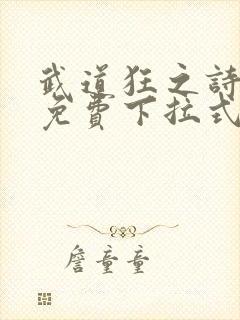 武道狂之詩
免費下拉式
詹童童